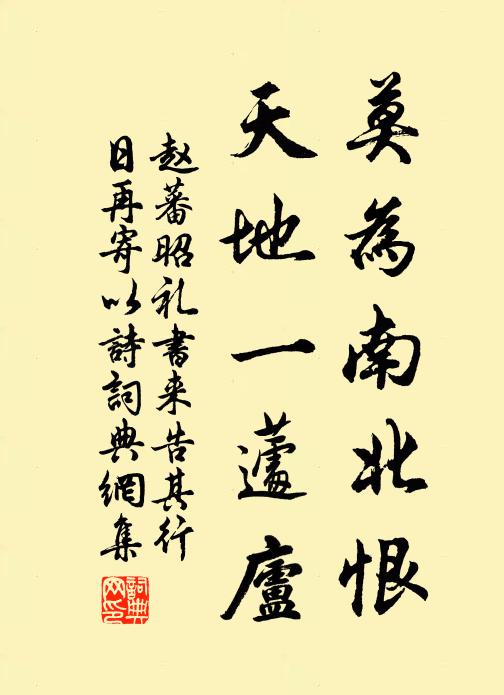 莫為南北恨
天地一蘧廬
赵蕃昭礼書来告其行
日再寄以詩詞典網集
詞典
网印